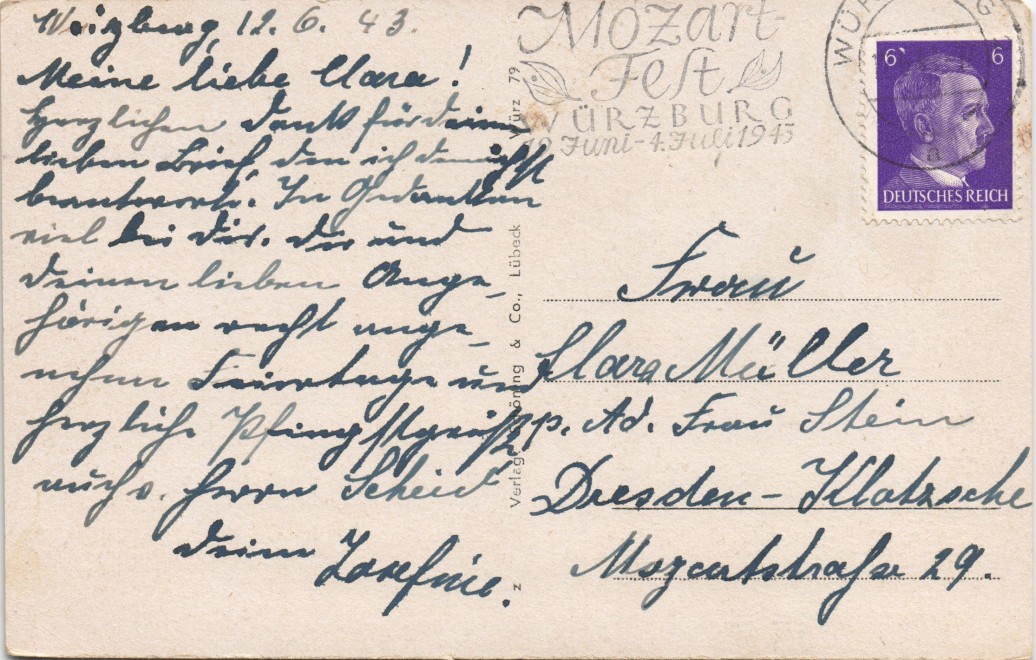 Würzburg, 12.6.43.
Meine liebe Clara!
Herzlichen Dank für deinen
lieben Brief, den ich demnächst
beantworte. In Gedanken
viel bei Dir. Dir und
deinen lieben Ange-
hörigen recht ange-
nehme Feiertage und
herzliche Pfingstgrüße
auch v. Herrn Scheid
deine Josefine.
Mozart-
Fest
WÜRZBURG
Juni-4.Juli 1943
WÜRZBURG
a
6 6
DEUTSCHES REICH
Würz 79
Verlag Schöning & Co., Lübeck
z
Frau
Clara Müller
p. Ad. Frau Stein
Dresden-Klotzsche
Mozartstraße 29.